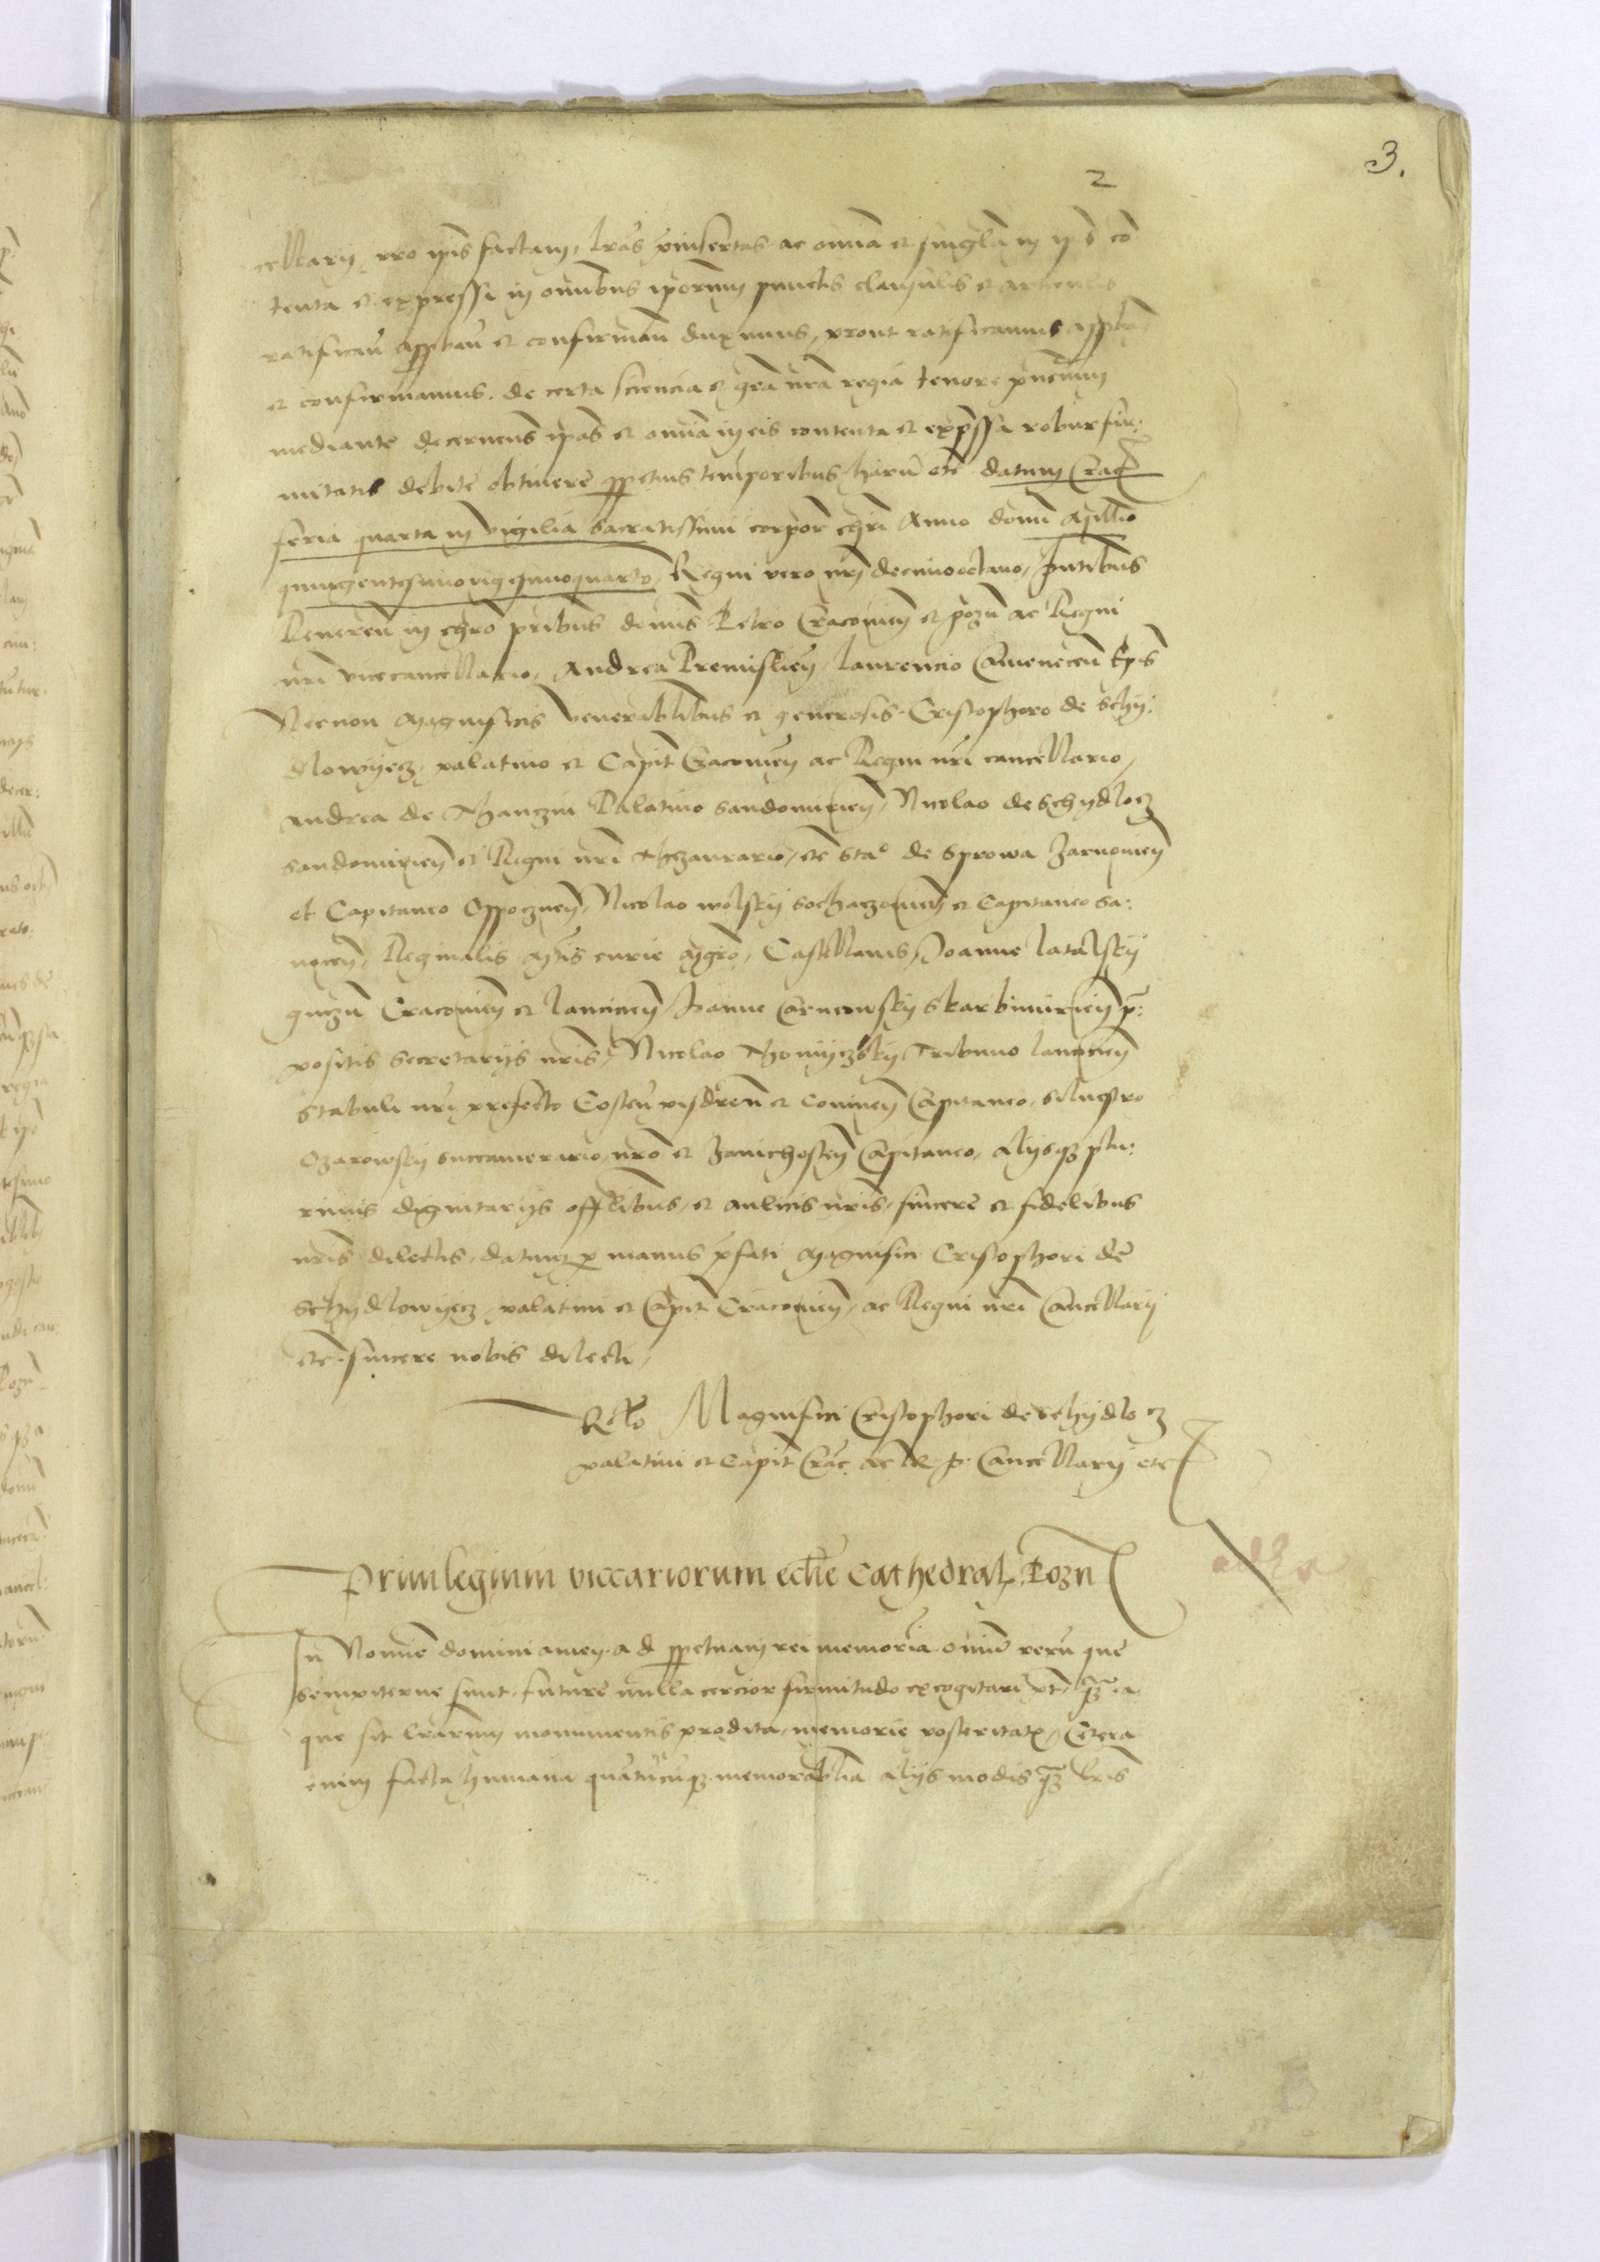 3.
2
cellarij pro ipis factam, lras preinsertas ac omia et singla in ijsd con
tenta et expressa in omibus iporum punctis clausulis et articulis
ratifican approban et confirman duximus, prout ratificamus approba
et confirmamus. de certa sciencia et gra nra regia tenore pncium
mediante decernens ipas et omia in eis contenta et expssa robur fir:
mitatis debite obtinere ppetuis temporibus, harum etc datum Crac
feria quarta in vigilia sacratissimi corporis chri Anno domi Millimo
quingentesimo vigesimoquarto, Regni vero nri decimooctavo, Pntibus
Reveren in chro pribus domis Petro Cracovien et pozn ac Regni
nri vicecancellario, Andrea Premislien, laurencio Camenecen Epis
Necnon Magnificis venerabilibus et generosis Cristophoro de schy:
dlowyecz, palatino et Capit Cracovien ac Regni nri cancellario,
Andrea de Thanczin Palatino sandomirien, Nicolao de Schydlocz
sandomirien et Regni nri thezaurario, etc Sta° de Sprowa Zarnovien
et Capitaneo Oppocznen, Nicolao wolsky sochaczovien et Capitaneo sa:
nocen, Reginalis Mtis curie Mgro, Castellanis, Joanne latalsky
gnezn Cracovien et lancicien Joanne Carncowsky skarbimirien p:
positis secretarijs nris, Nicolao Thomyczsky Tribuno lancicien
stabuli nri prefecto Costen visdren et Coninen Capitaneo, silvestro
Ozarowsky succamerario nro et Zawichosten Capitaneo, alijsq3 plu:
rimis dignitarijs offlibus, et aulicis nris, sincere et fidelibus
nris dilectis, datum p manus pfati Magnifici Cristophori de
Schydlowyecz, palatini et Capit Cracovien, ac Regni nri Cancellarij
etc. sincere nobis dilecti,
Relo Magnifici Cristophori de schydlo cz
palatini et Capit Crac. ac R. p. Cancellarij etc
Privilegium viccariorum eclie Cathedral Pozn
In Nomine domini amen. ad ppetuam rei memoria. omium reru que
sempiterne sunt future nulla cercior firmitudo excogitari pt, q3 ea
que sit lrarum monumentis prodita, memorie posteritatis, Cetera
enim facta humana quatucuq3 memorabilia alijs modis q3 lris